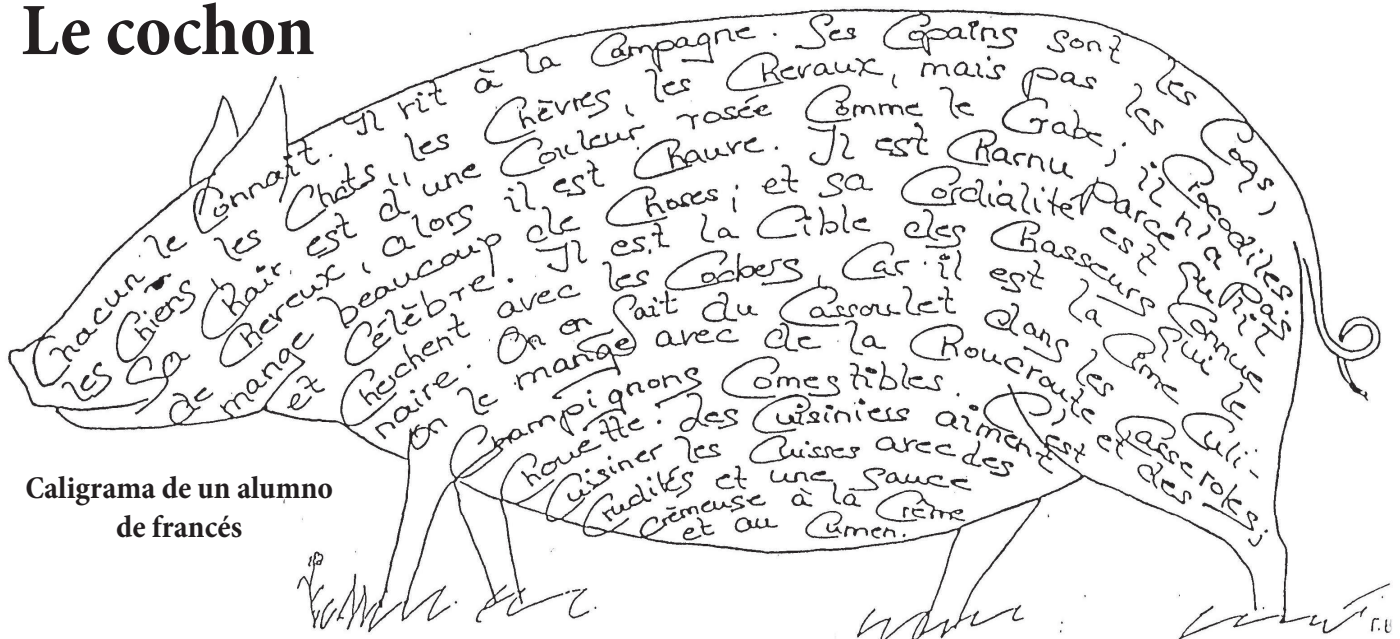 Le cochon
Chacun le Connait. Il rit à la Campagne. Ses Copains sont les Coqs,
les Chiens les Chats, les Chèvres, les Chevaux, mais pas les Crocodiles
Sa Chair est d'une Couleur rosée Comme le Crabe; il n'a pas
de Cheveux, alors il est Chauve. Il est Charnu Parce qu'il
mange beaucoup de Choses; et sa Cordialité est Connue
et Célèbre. Il est la Cible des Chasseurs qui le
Cherchent avec les Cockers, Car il est la Cime Culi-
naire. On en fait du Cassoulet dans les Casseroles;
on le mange avec de la Choucroute et des
Champignons Comestibles. C'est
Chouette. Les Cuisiniers aiment
Cuisiner les Cuisses avec des
Crudités et une sauce
crèmeuse à la Crème
et au Cumen.
Caligrama de un alumno
de francés